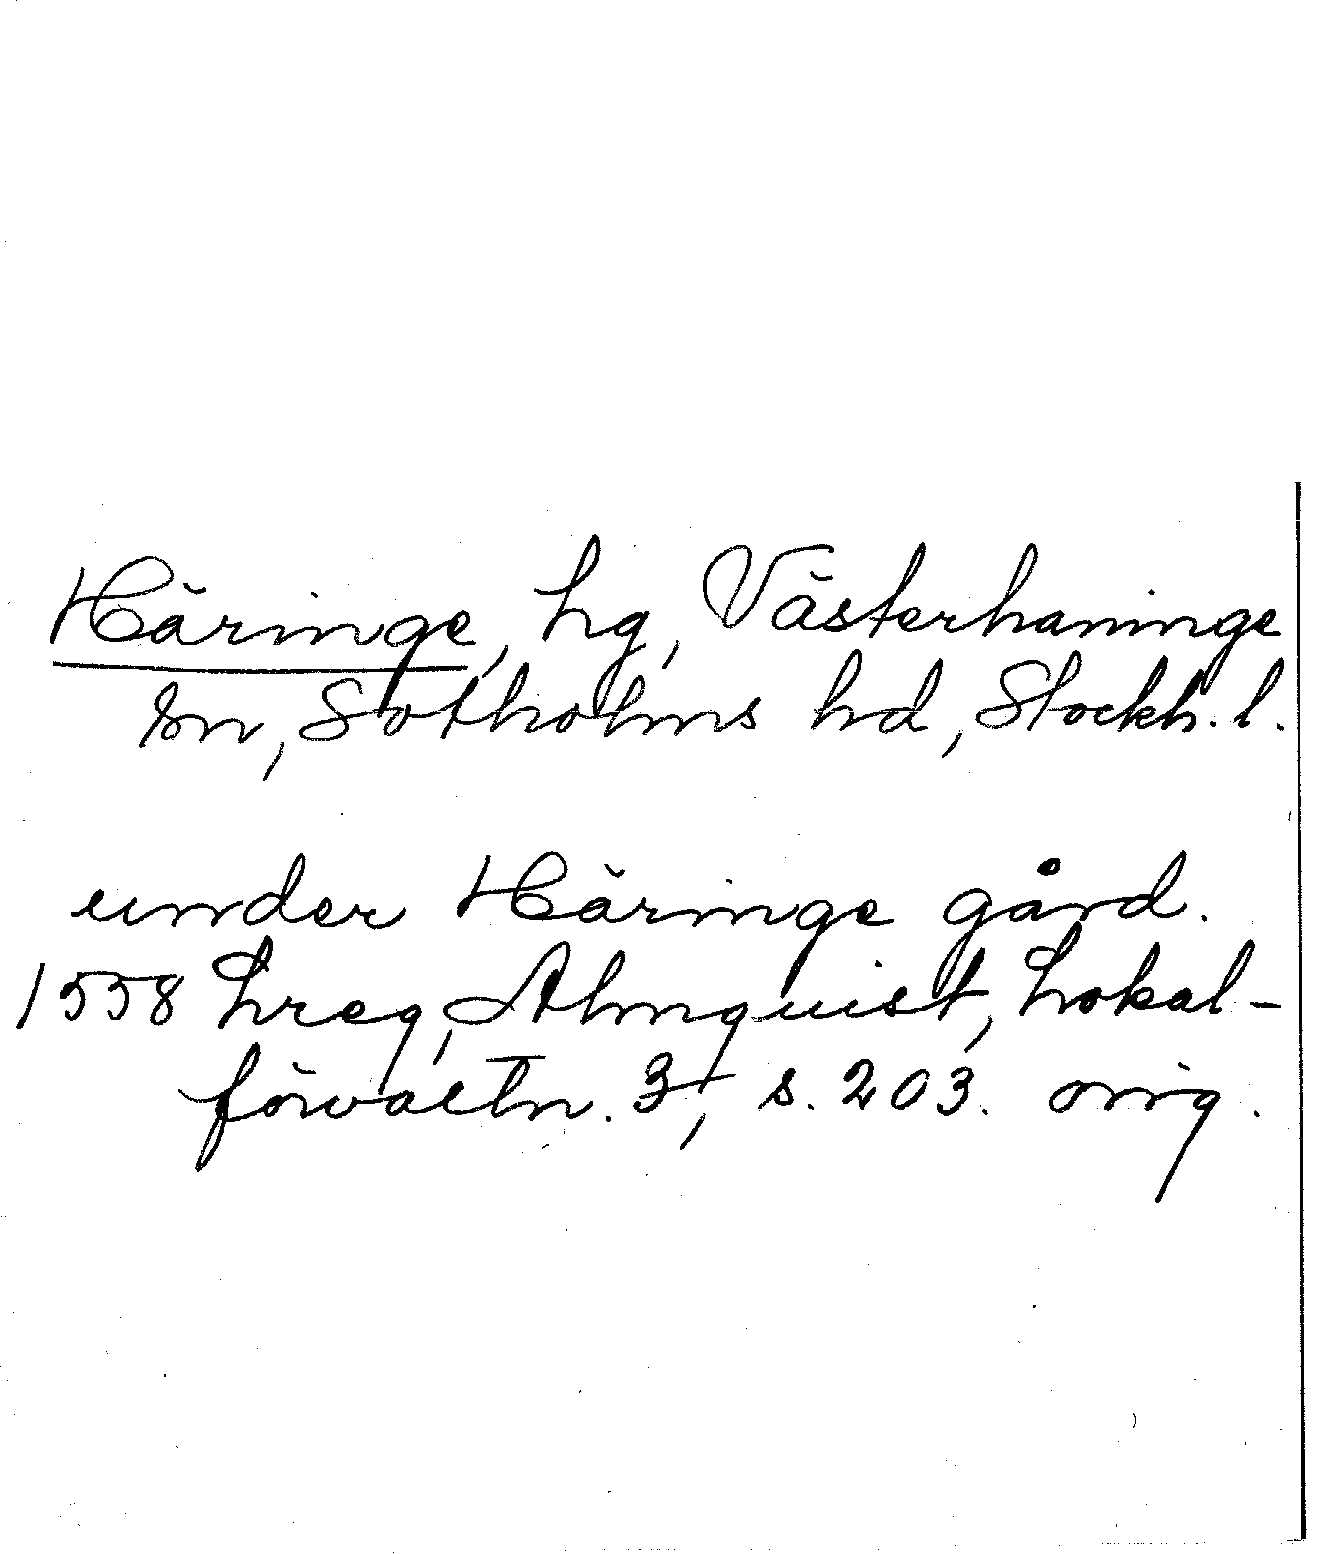 Häringe, hg, Västerhaninge
sn, Sotholms hd, Stockh. l.
under Häringe gård.
1558 hreg, Almquist, Lokal-
förvaltn. 3, s. 203. orig.